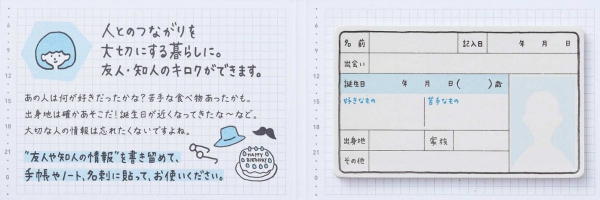 人とのつながりを
大切にする暮らしに。
友人・知人のキロクができます。
あの人は何が好きだったかな?苦手な食べ物あったかも。
出身地は確かあそこだ!誕生日が近くなってきたな〜など。
大切な人の情報は忘れたくないですよね。
"友人や知人の情報"を書き留めて、
手帳やノート、名刺に貼って、お使いください。
HAPPY
BIRTHDAY
名前 記入日 年 月 日
出会い
誕生日 年 月 日( )歳
好きなもの 苦手なもの
出身地 家族
その他
6
9
12
15
18
21
0
6
9
12
15
18
21
0